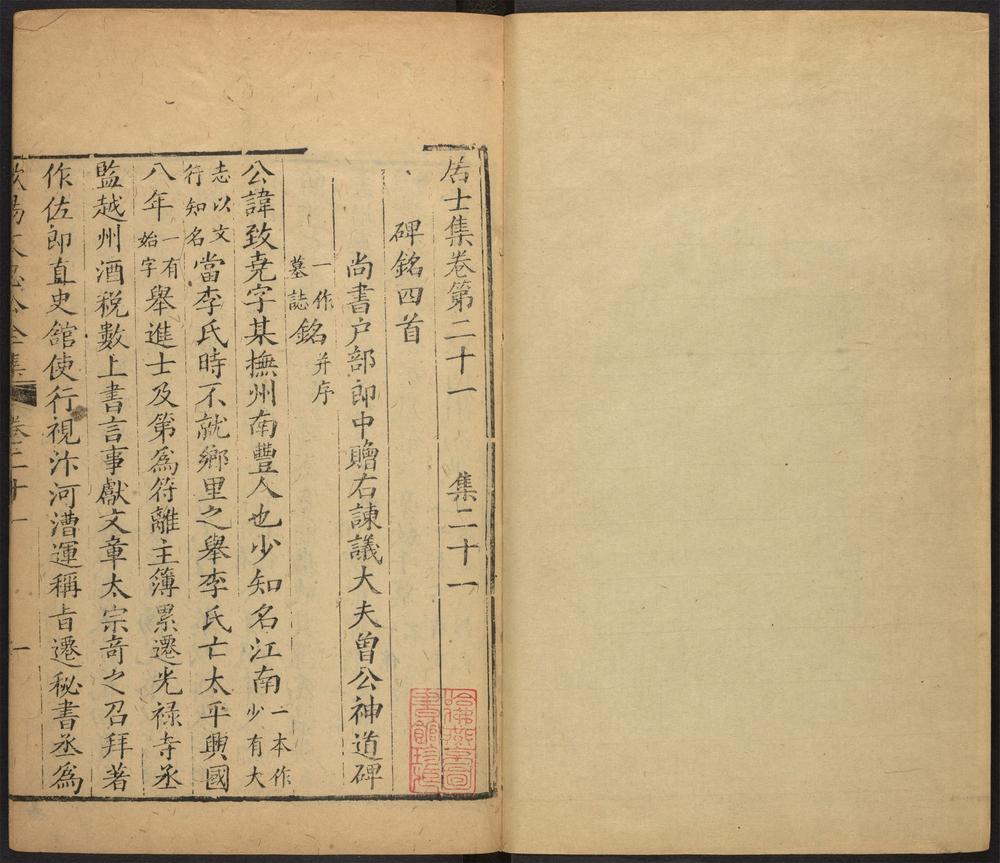 居士集卷第二十一　集二十一
碑銘四首
尚書户部郎中贈右諫議大夫曾公神道碑
一作墓誌銘并序
公諱致堯字某撫州南豐人也少知名江南一本作少有大
志以文行知名當李氏時不就鄉里之舉李氏亡太平興國
八年一有始字舉進士及第為符離主簿累遷光禄寺丞
監越州酒税數上書言事獻文章太宗竒之召拜著
作佐郎直史館使行視汴河漕運稱旨遷秘書丞為
歐陽文忠公全集　卷二十一　一
哈佛燕京圖書館珍藏